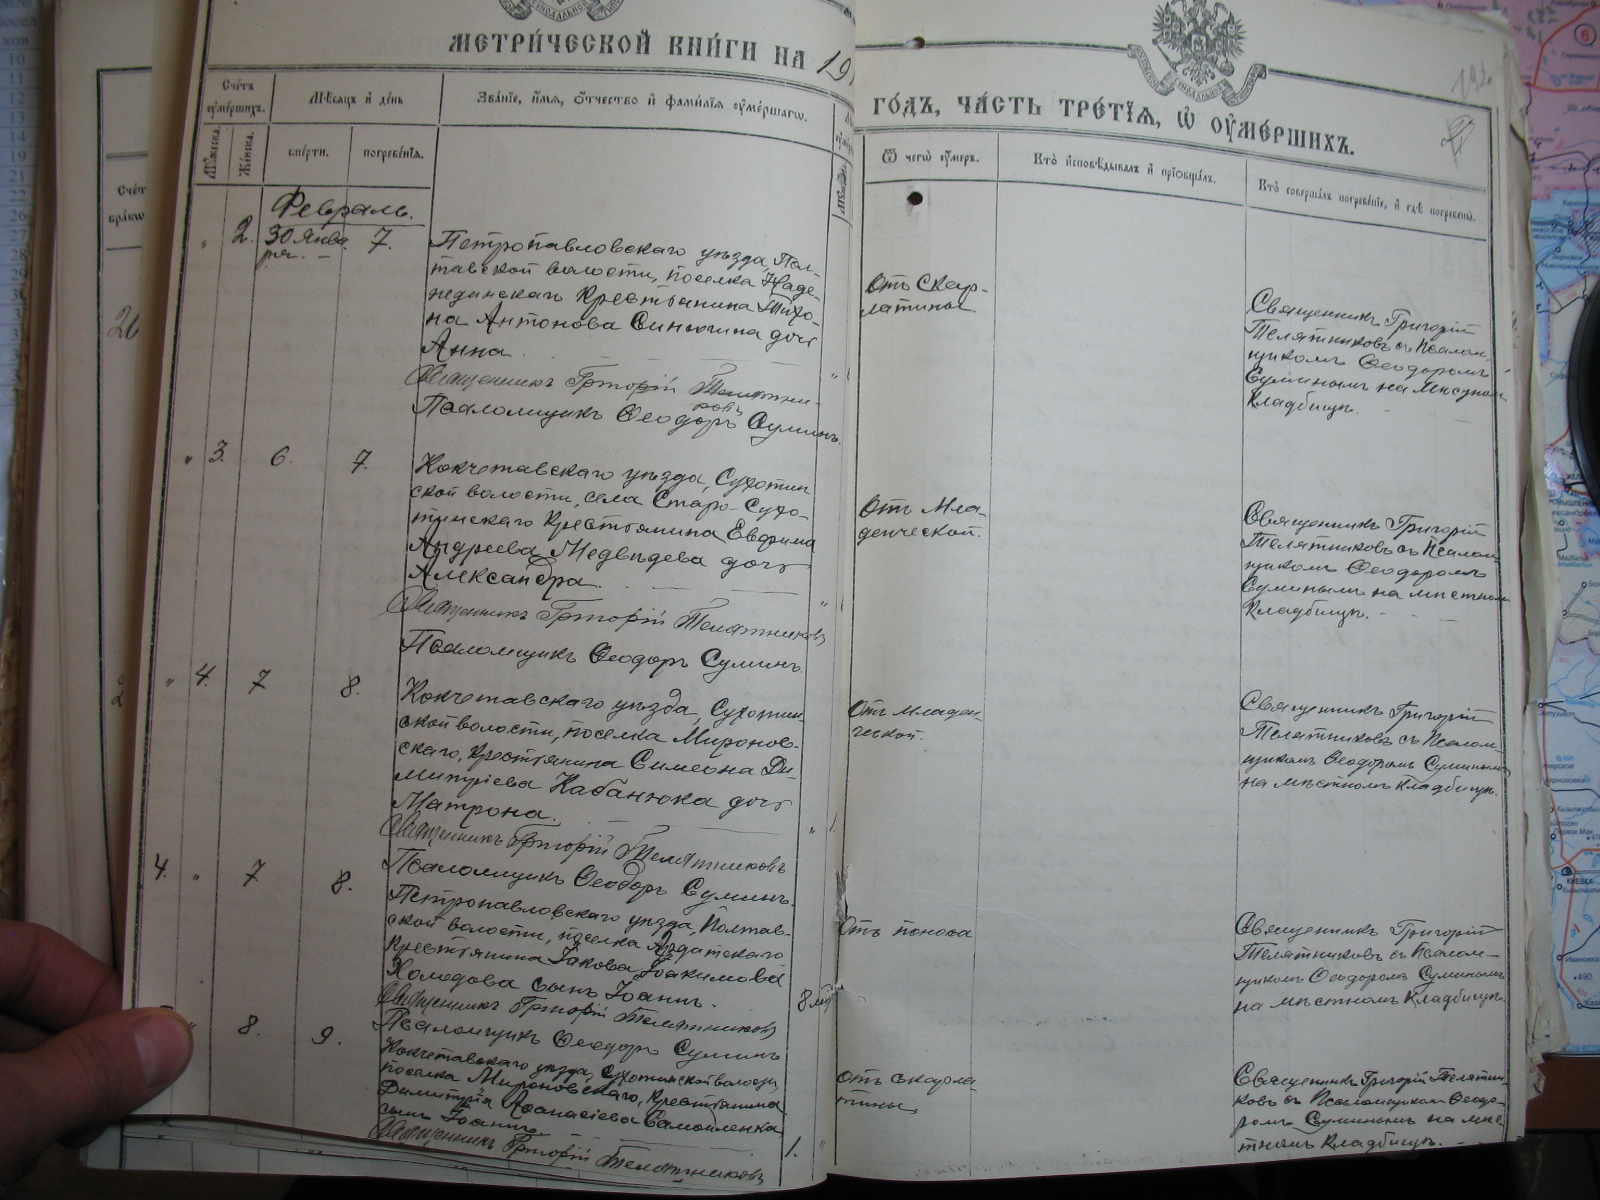 МЕТРИ́ЧЕСКОЙ КНИ́ГИ НА 191
ГО́ДЪ, ЧА́СТЬ ТРЕ́ТЇѦ, Ѡ҆ ОУ҆МЕ́РШИХЪ.
Счетъ оумершихъ.
Мѣсяцъ и день
Званіе, имя, отчество и фамилія оумершагѡ.
Ѿ чегѡ оумеръ.
Кто исповѣдывалъ и пріобщалъ.
Кто совершалъ погребеніе, и гдѣ погребены.
Мужеска.
Женска.
смерти.
погребенія.
Февраль.
2.
30 Янва
ря.
7.
Петропавловскаго уѣзда, Пол-
тавской волости, поселка Наде-
жединскаго Крестьянина Тихо-
на Антонова Синюгина дочь
Анна.
Священникъ Григорій Телятни-
ковъ
Псаломщикъ Ѳеодоръ Суминъ.
Отъ Скар-
латины
Священникъ Григорій
Телятниковъ съ Псалом-
щикомъ Ѳеодоромъ
Суминымъ на мѣстном
Кладбищѣ.
3.
6.
7.
Кокчетавскаго уѣзда, Сухотин
ской волости, села Старо-Сухо-
тинскаго Крестьянина Евфима
Андреева Медвѣдева дочь
Александра.
Священникъ Григорій Телятниковъ
Псаломщикъ Ѳеодоръ Суминъ.
Отъ Мла-
денческой.
Священникъ Григорій
Телятниковъ съ Псалом-
щикомъ Ѳеодоромъ
Суминымъ на мѣстном
Кладбищѣ.
4.
7
8.
Кокчетавскаго уѣзда, Сухотин-
ской волости, поселка Миронов-
скаго, Крестьянина Симеона Ди-
митріева Кабанюка дочь
Матрона.
Священникъ Григорій Телятниковъ
Псаломщикъ Ѳеодоръ Суминъ.
Отъ младен-
ческой.
Священникъ Григорій
Телятниковъ съ Псалом-
щикомъ Ѳеодоромъ Суминымъ
на мѣстномъ Кладбищѣ.
4.
7
8.
Петропавловскаго уѣзда, Полтав-
ской волости, поселка Ардатскаго
Крестьянина Іакова Іоакимова
Холодова сынъ Іоаннъ.
Священникъ Григорій Телятниковъ
Псаломщикъ Ѳеодоръ Суминъ
8
Отъ поноса
Священникъ Григорій
Телятниковъ съ Псалом-
щикомъ Ѳеодоромъ Суминымъ
на мѣстномъ Кладбищѣ.
8.
9.
Кокчетавскаго уѣзда, Сухотинской волости
поселка Мироновскаго, Крестьянина
Димитрія Аѳанасіева Самойленка
сынъ Іоаннъ
Священникъ Григорій Телятниковъ
1.
отъ скарла
тины
Священникъ Григорій Телятни-
ковъ съ Псаломщикомъ Ѳеодо-
ромъ Суминымъ на мѣс
тномъ Кладбищѣ.